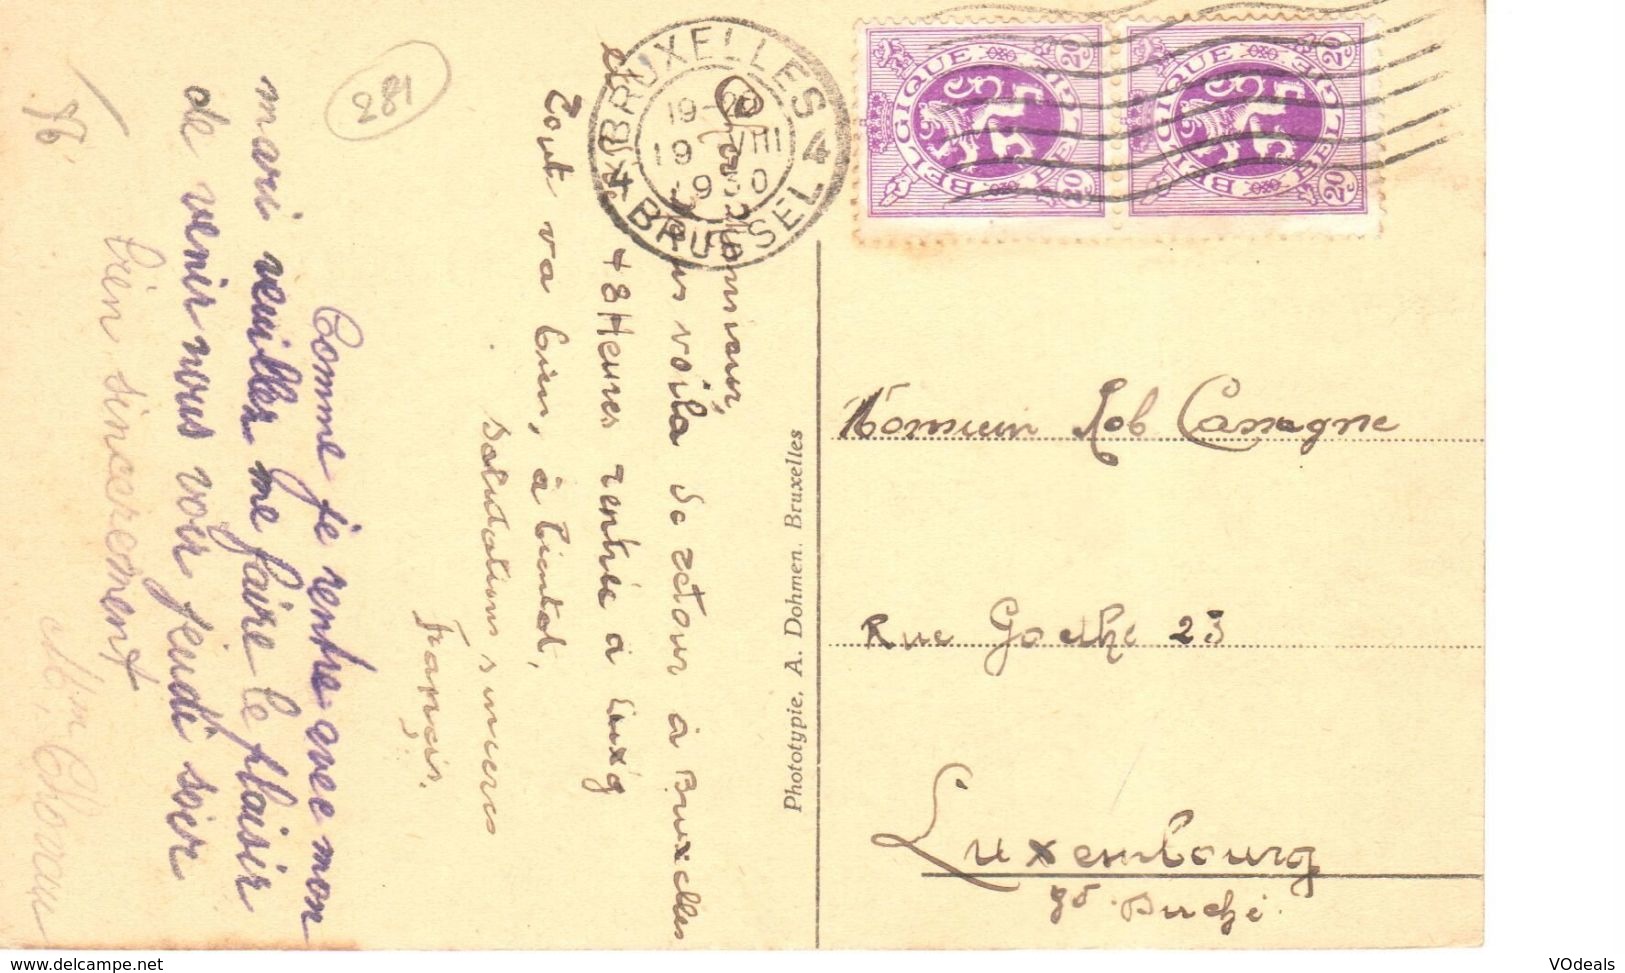 Monsieur,
vous voilà de retour à Bruxelles
et 48 Heures rentré à Luxg
Tout va bien, à bientot,
Salutations sinceres
François.
Comme je rentre avec mon
mari veuillez me faire le plaisir
de venir nous voir jeudi soir
bien sincerement
281
BRUXELLES 4
19-20
19 VIII
1930
BRUSSEL
BELGIQUE BELGIE
20c 20c
BELGIQUE BELGIE
20c 20c
Phototypie. A. Dohmen. Bruxelles
Monsieur Rob Cassagne
Rue Goethe 23
Luxembourg
gd. Duché.
www.delcampe.net
VOdeals